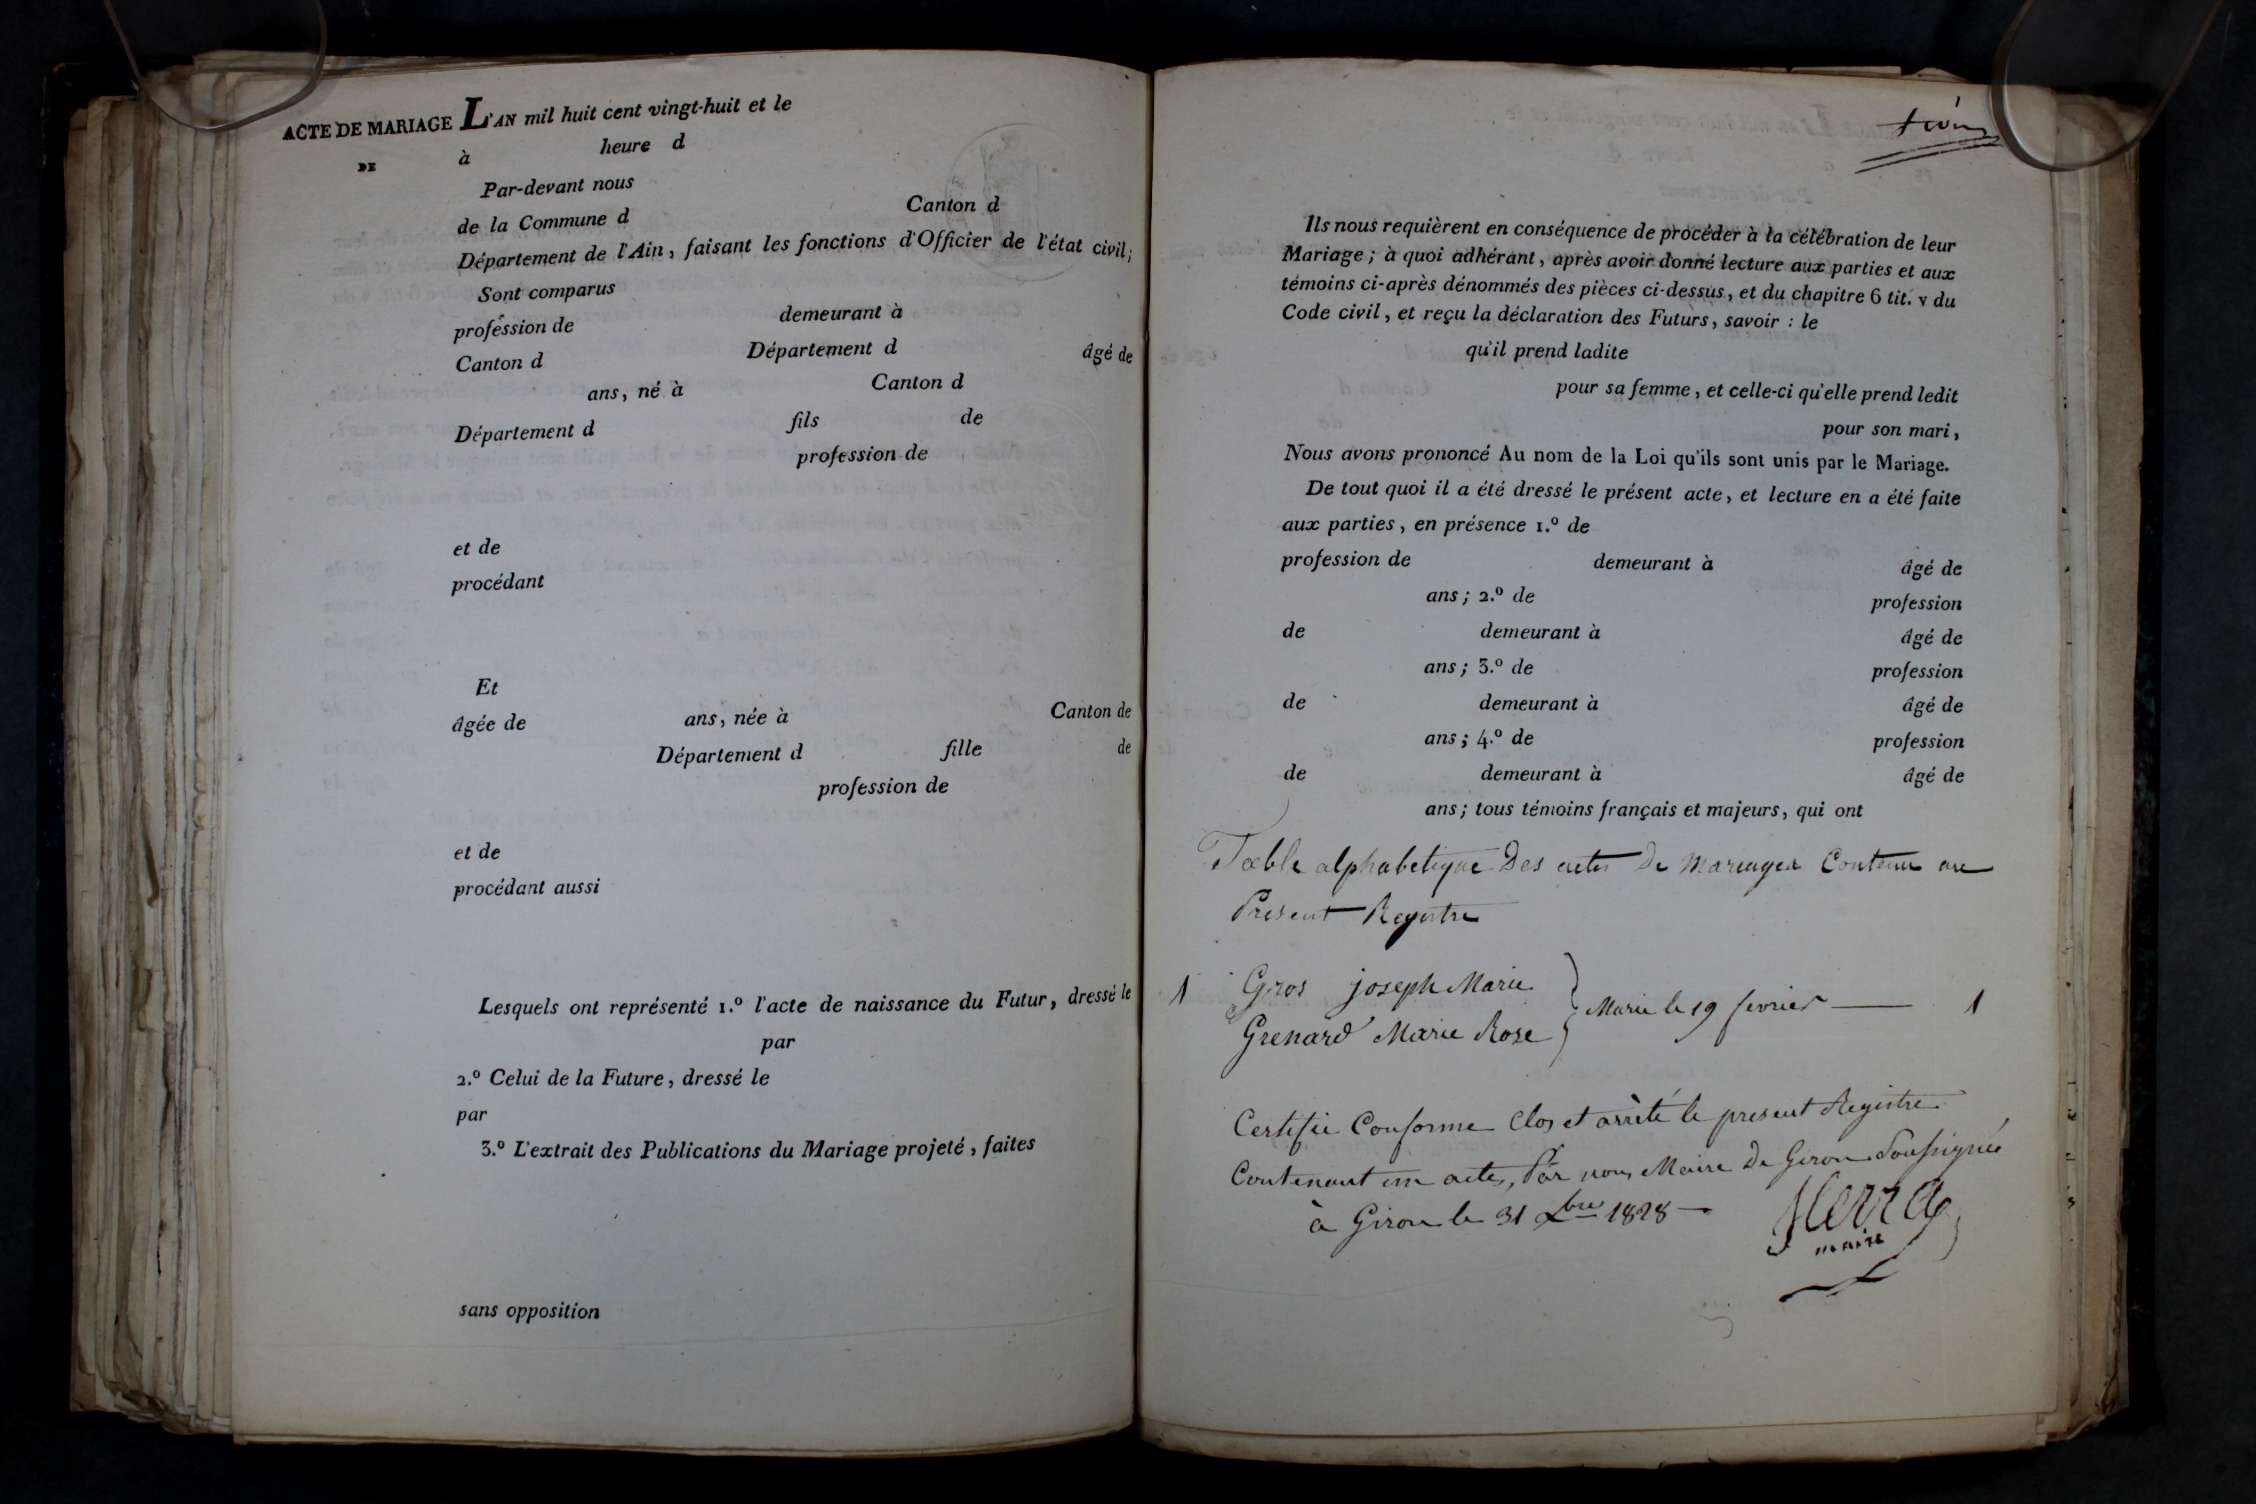 ACTE DE MARIAGE L'AN mil huit cent vingt-huit et le
DE à heure d
Par-devant nous
de la Commune d Canton d
Département de l'Ain, faisant les fonctions d'Officier de l'état civil;
Sont comparus
profession de demeurant à
Canton d Département d âgé de
ans, né à Canton d
Département d fils de
profession de
et de
procédant
Et
âgée de ans, née à Canton de
Département d fille de
profession de
et de
procédant aussi
Lesquels ont représenté 1.º l'acte de naissance du Futur, dressé le
par
2.º Celui de la Future, dressé le
par
3.º L'extrait des Publications du Mariage projeté, faites
sans opposition
Ils nous requièrent en conséquence de procéder à la célébration de leur
Mariage; à quoi adhérant, après avoir donné lecture aux parties et aux
témoins ci-après dénommés des pièces ci-dessus, et du chapitre 6 tit. v du
Code civil, et reçu la déclaration des Futurs, savoir : le
qu'il prend ladite
pour sa femme, et celle-ci qu'elle prend ledit
pour son mari,
Nous avons prononcé Au nom de la Loi qu'ils sont unis par le Mariage.
De tout quoi il a été dressé le présent acte, et lecture en a été faite
aux parties, en présence 1.º de
profession de demeurant à âgé de
ans; 2.º de profession
de demeurant à âgé de
ans; 3.º de profession
de demeurant à âgé de
ans; 4.º de profession
de demeurant à âgé de
ans; tous témoins français et majeurs, qui ont
Table alphabetique Des actes De Mariages Contenu au
Present Registre
1 Gros joseph Marie
Marié le 19 fevrier — 1
Grenard Marie Rose
Certifié Conforme Clos et arrêté le present Registre
Contenant un acte, Par nous Maire De Giron Soussigné
à Giron le 31 Xbre 1828 —
maire